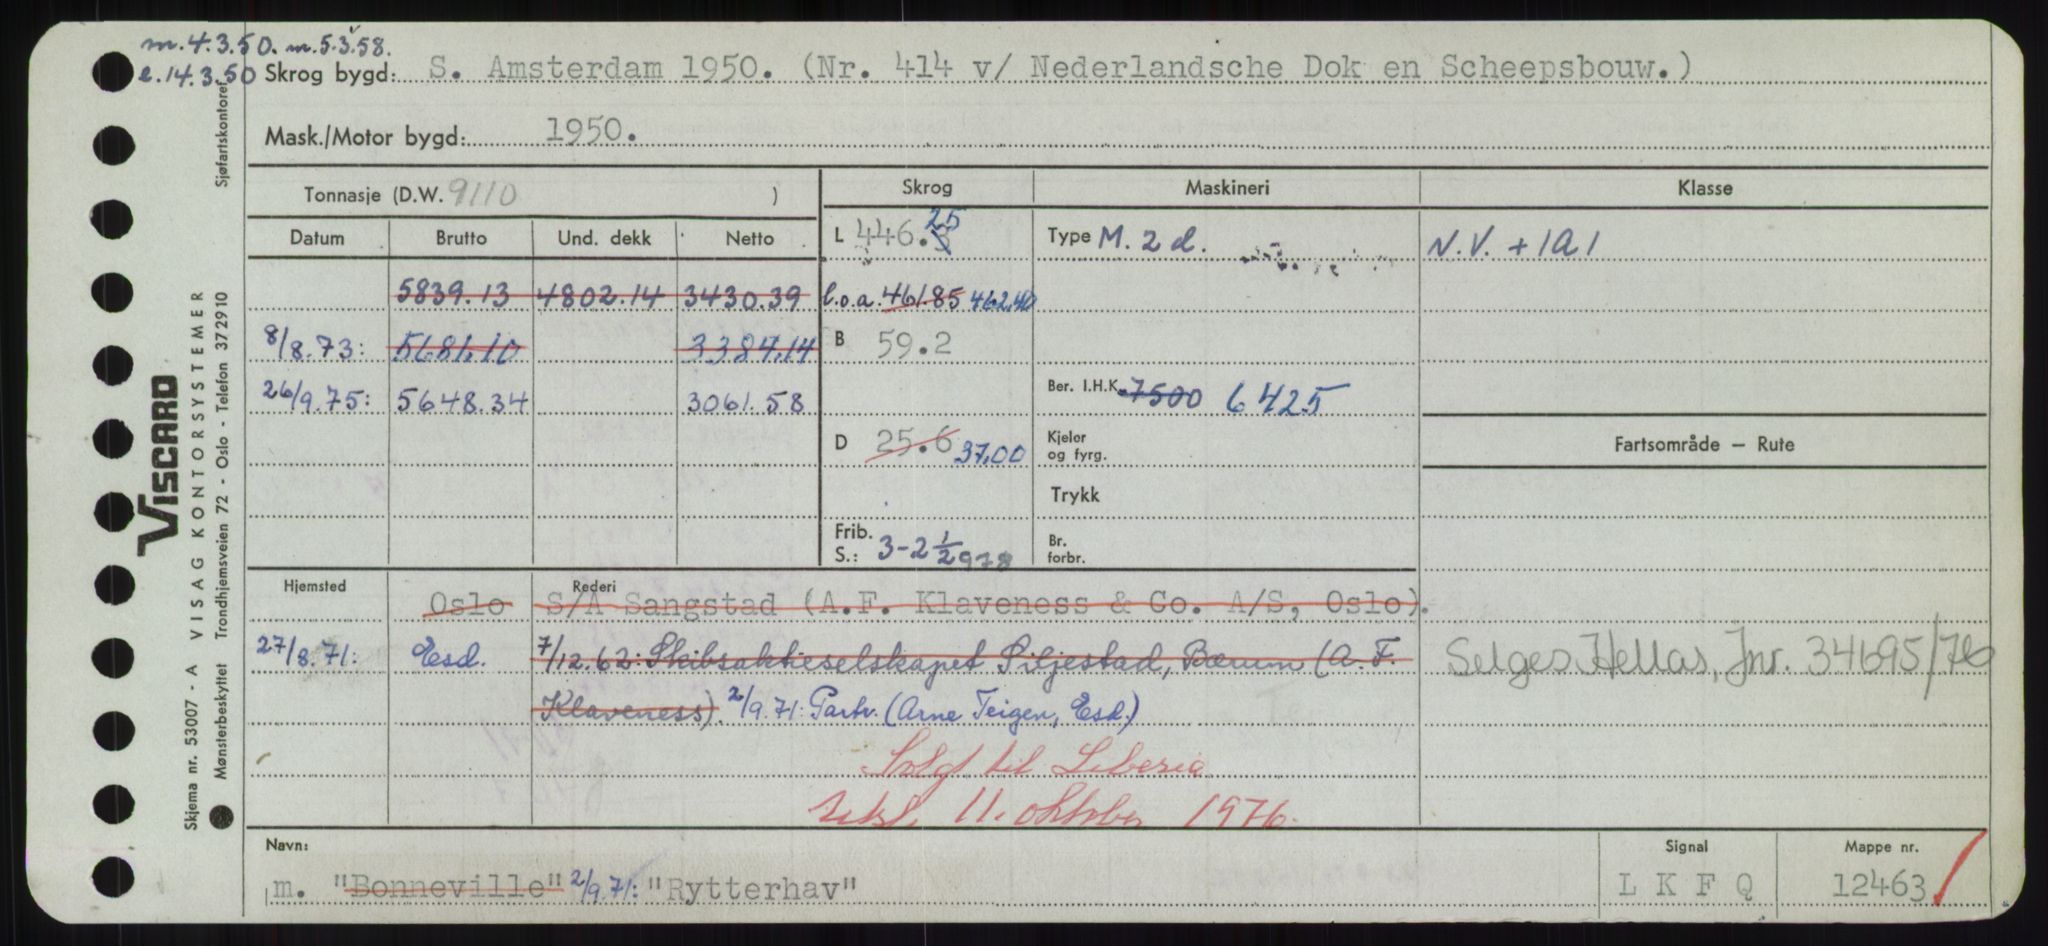 m. 4.3.50. m. 5.3.58.
l. 14.3.50 Skrog bygd: S. Amsterdam 1950. (Nr. 414 v/ Nederlandsche Dok en Scheepsbouw.)
Mask./Motor bygd: 1950.
Tonnasje (D.W. 9110 ) Skrog Maskineri Klasse
Datum Brutto Und. dekk Netto L 446.3 25 Type M. 2 d. N.V. + 1A1
5839.13 4802.14 3430.39 l.o.a. 461.85 462,40
8/8.73: 5681,10 3384,14 B 59.2
26/9.75: 5648.34 3061.58 Ber. I.H.K. 7500 6425
D 25.6 37,00 Kjeler og fyrg. Fartsområde – Rute
Trykk
Frib. S.: 3-2 1/2 978 Br. forbr.
Hjemsted Rederi
Oslo S/A Sangstad (A.F. Klaveness & Co. A/S, Oslo).
27/8.71: Esd. 7/12.62: Skibsaktieselskapet Siljestad, Bærum (A.F. Selges Hellas, Jnr. 34695/76
Klaveness). 2/9.71: Partr. (Arne Teigen, Esd.)
Solgt til Liberia
11. oktober 1976.
Navn: Signal Mappe nr.
m. "Bonneville" 2/9.71: "Rytterhav" L K F Q 12463
Viscard
VISAG KONTORSYSTEMER Sjøfartskontoret
Skjema nr. 53007 - A
Mønsterbeskyttet Trondhjemsveien 72 - Oslo - Telefon 372910